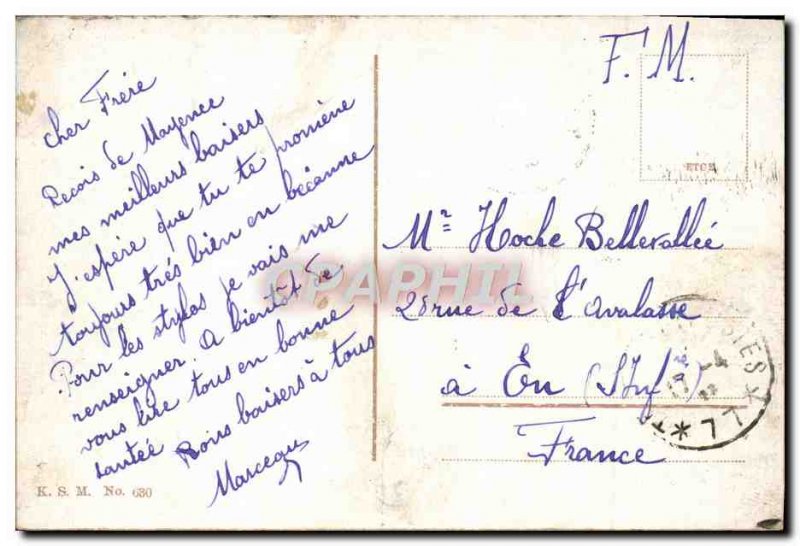 Cher Frère
Reçois de Mayence
mes meilleurs baisers
J'espère que tu te promène
toujours très bien en bécanne
Pour les stylos je vais me
renseigner. A bientôt de
vous lire tous en bonne
santée Bons baisers à tous
Marceau
K. S. M. No. 630
F. M.
Mr Hoche Bellevallée
28 rue de l'Avalasse
à Eu (S Infre)
France
CPAPHIL